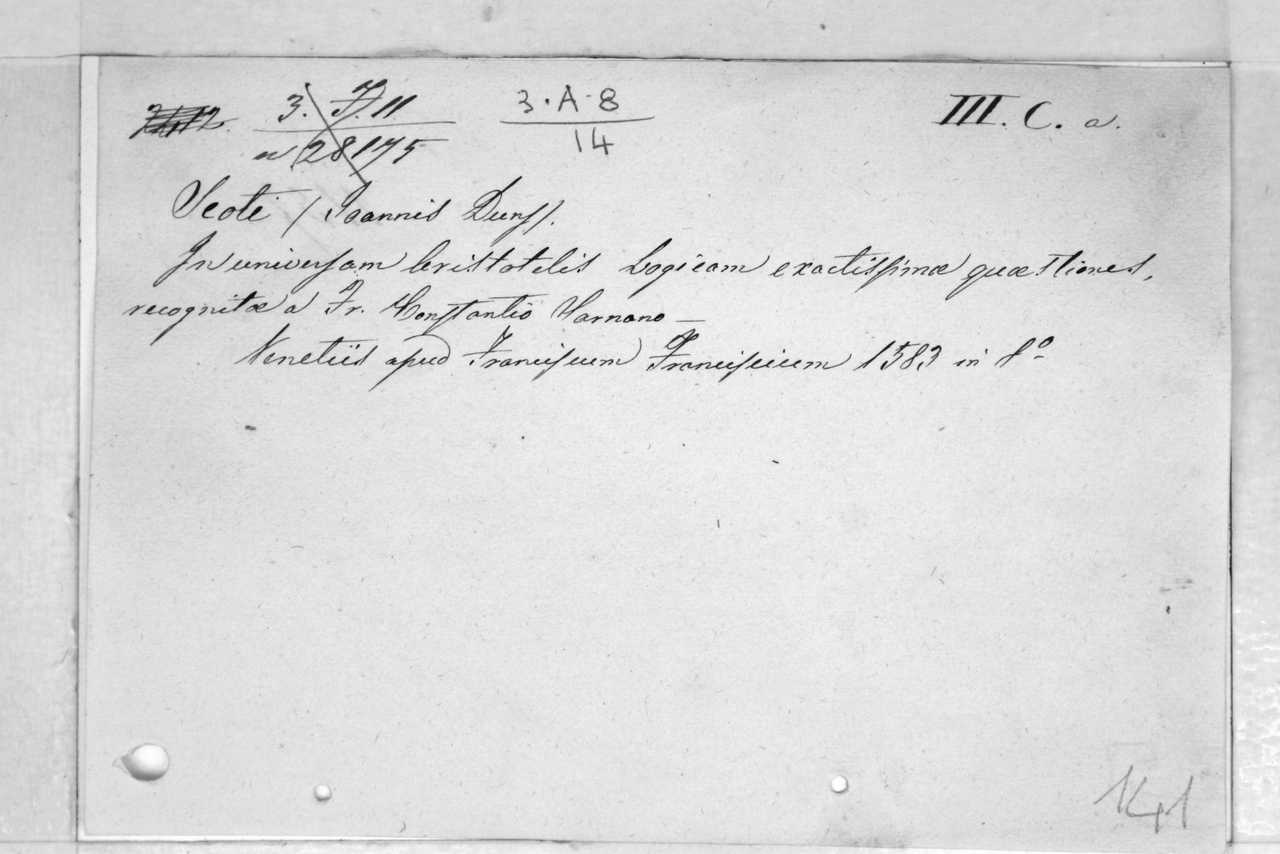 3. F. 11 3·A·8 III. C. a.
28175 14
Scoti / Joannis Duns/.
In universam Aristotelis Logicam exactissimæ quæstiones,
recognitæ a Fr. Constantio Sarnano —
Venetiis apud Franciscum Franciscium 1583 in 8º
141